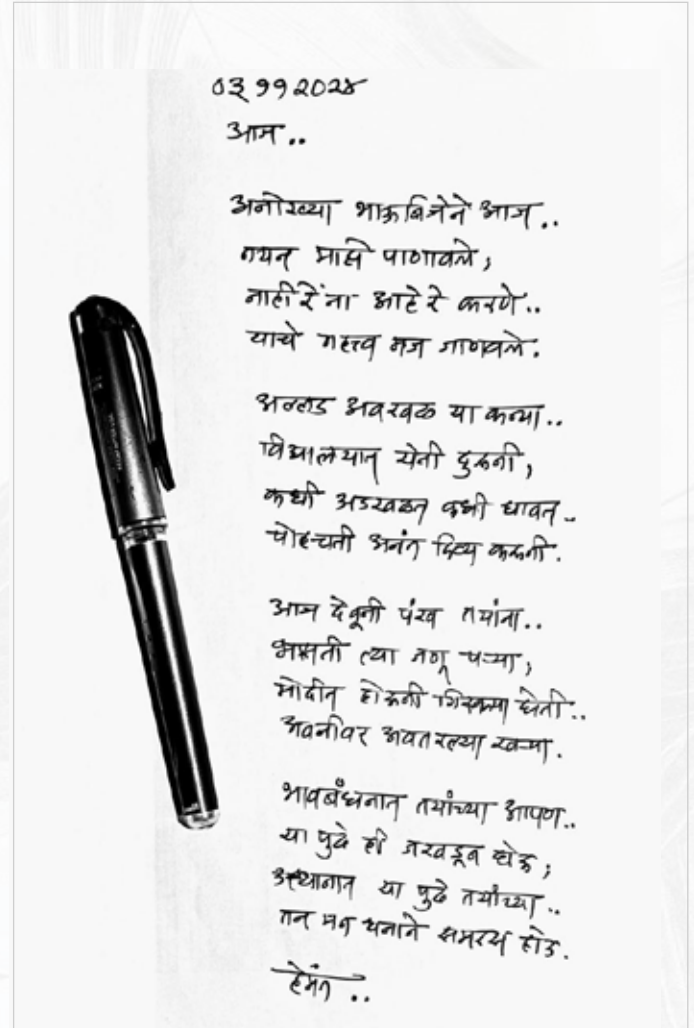 ०३ ११ २०२४
आज ..
अनोख्या भाऊबिजेने आज ..
नयन माझे पाणावले ;
नाही रे ना आहे रे करणे ..
याचे महत्त्व मज जाणवले .
अल्लड अवखळ या कन्या ..
विद्यालयात येती दुरुनी ;
कधी अडखळत कधी धावत ..
पोहचती अनंत दिव्य करुनी .
आज देवूनी पंख तयांना ..
भासती त्या जणू पऱ्या ;
मोदीत होऊनी गिरक्या घेती ..
अवनीवर अवतरल्या खऱ्या .
भावबंधनात तयांच्या आपण ..
या पुढे ही जखडून होऊ ;
उत्थानात या पुढे तयांच्या ..
तन मन धनाने समरस होऊ .
हेमंत ..